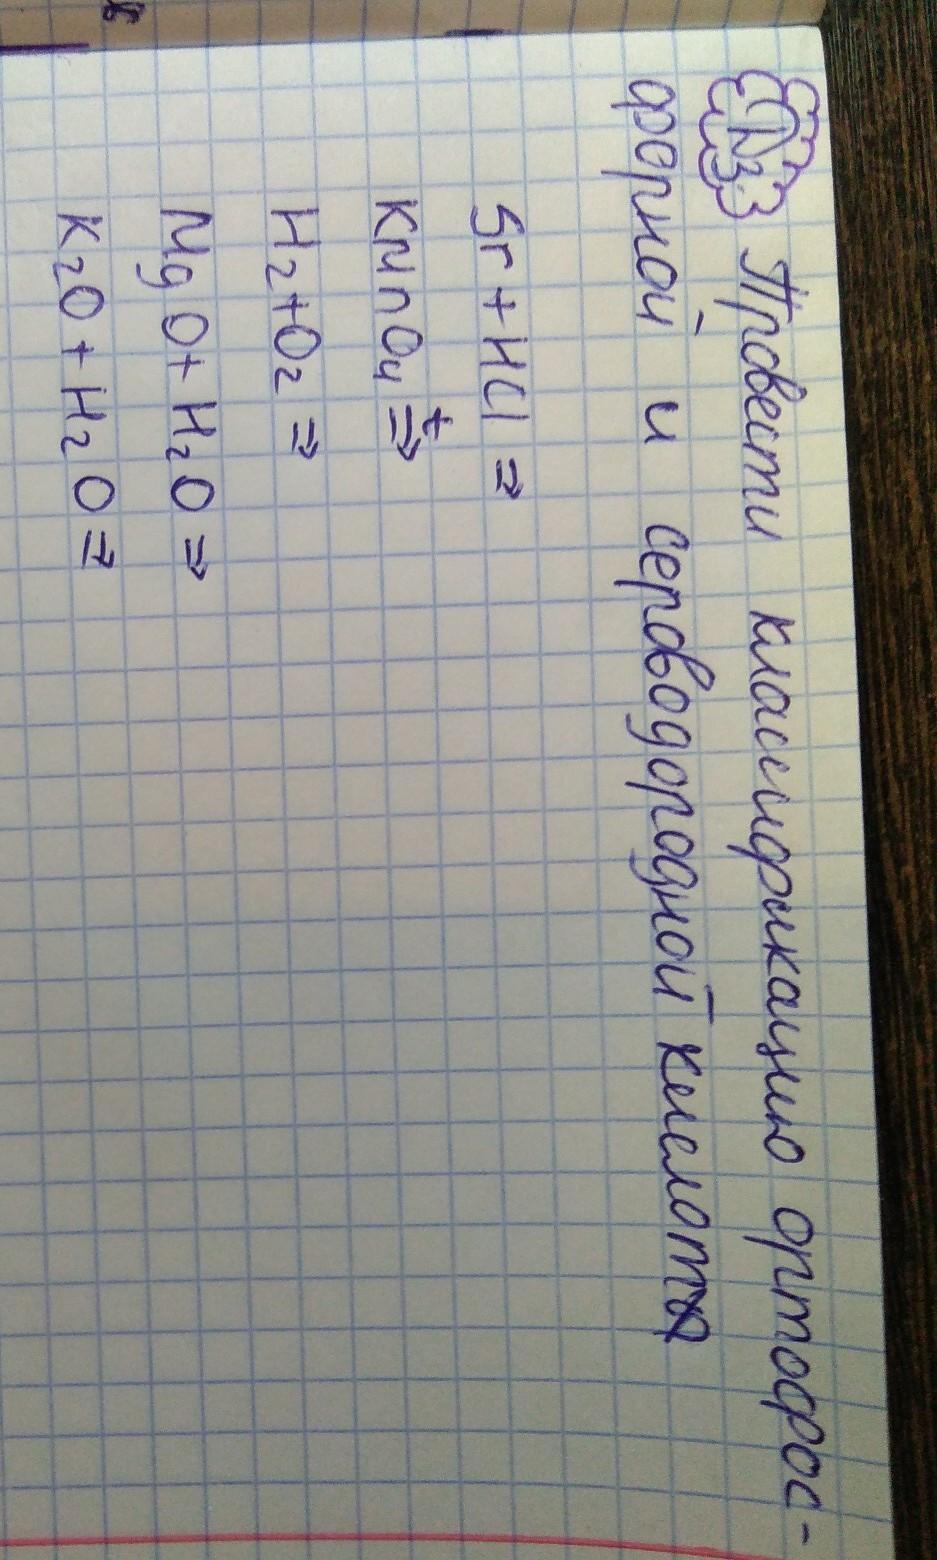 №3. Провести классификацию ортофос-
форной и сероводородной кислот
Sr + HCl ⇒
KMnO₄ t⇒
H₂ + O₂ ⇒
MgO + H₂O ⇒
K₂O + H₂O ⇒